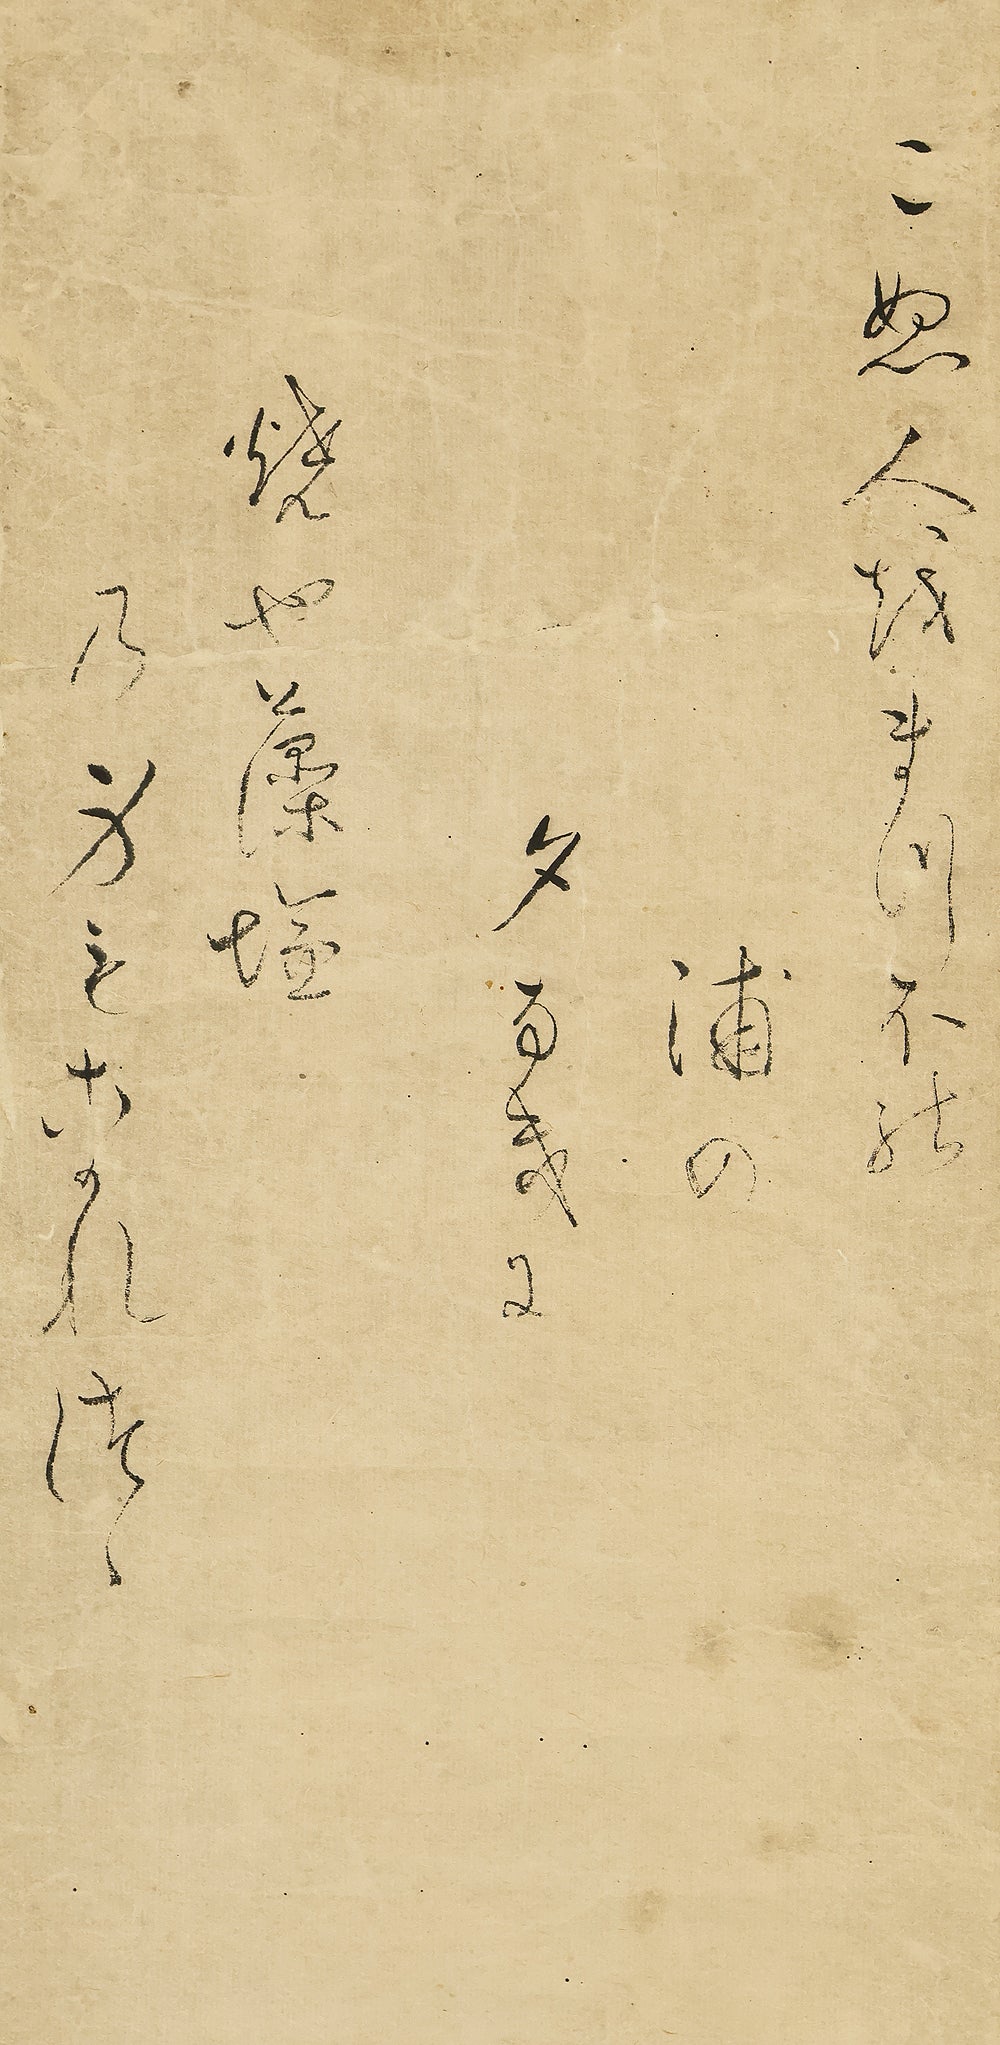 こぬ人越まつほ能
浦の
夕なきに
焼や藻塩
乃身もこかれつゝ